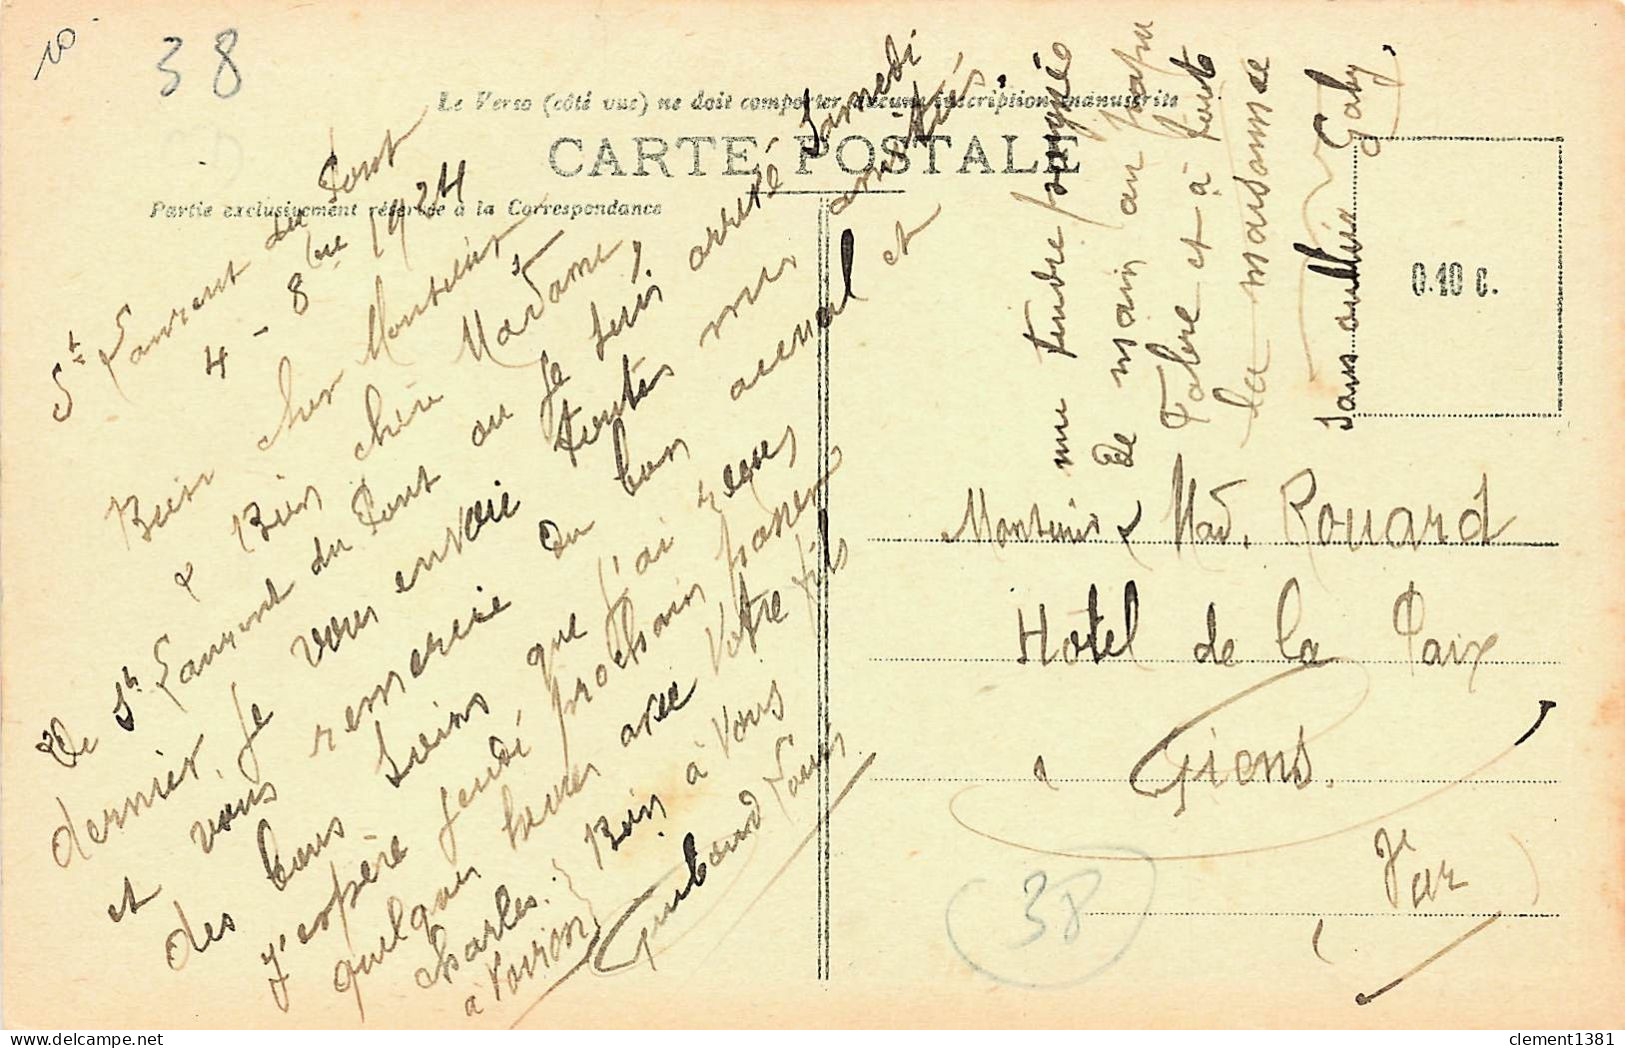 10
38
Le Verso (côté vue) ne doit comporter aucune inscription manuscrite
CARTE POSTALE
Partie exclusivement réservée à la Correspondance
St Laurent du Pont
4 - 8bre 1924
Bien cher Monsieur
& Bien chère Madame,
De St Laurent du Pont ou je suis arrivé Samedi
dernier, je vous envoie toutes mes amitiés.
et vous remercie du bon accueil et
des bons soins que j'ai reçus
J'espère jeudi prochain passer
quelques heures avec votre fils
Charles. Bien à Vous
à Voiron
Guibaud Louis
une tendre poignée
de main au papa
Fabre et à toute
la maisonnée
sans oublier Gaby.
0.10 c.
Monsieur & Mad. Rouard
Hotel de la Paix
à Giens.
Var
38
clement1381